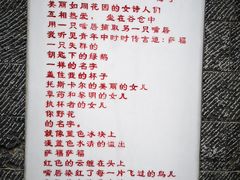 美丽如周花园的女诗人们
互相热爱，坐在谷仓中
用一只嘴唇摘取另一只嘴唇
我听见青年中时时传言道：萨福
一只失群的
钥匙下的绿鹅
一样的名字
盖住我的杯子
托斯卡尔的美丽的女儿
草药和黎明的女儿
执杯者的女儿
你野花
的名字
就像蓝色冰块上
淡蓝色水清的溢出
萨福萨福
红色的云缠在头上
嘴唇染红了每一片飞过的鸟儿